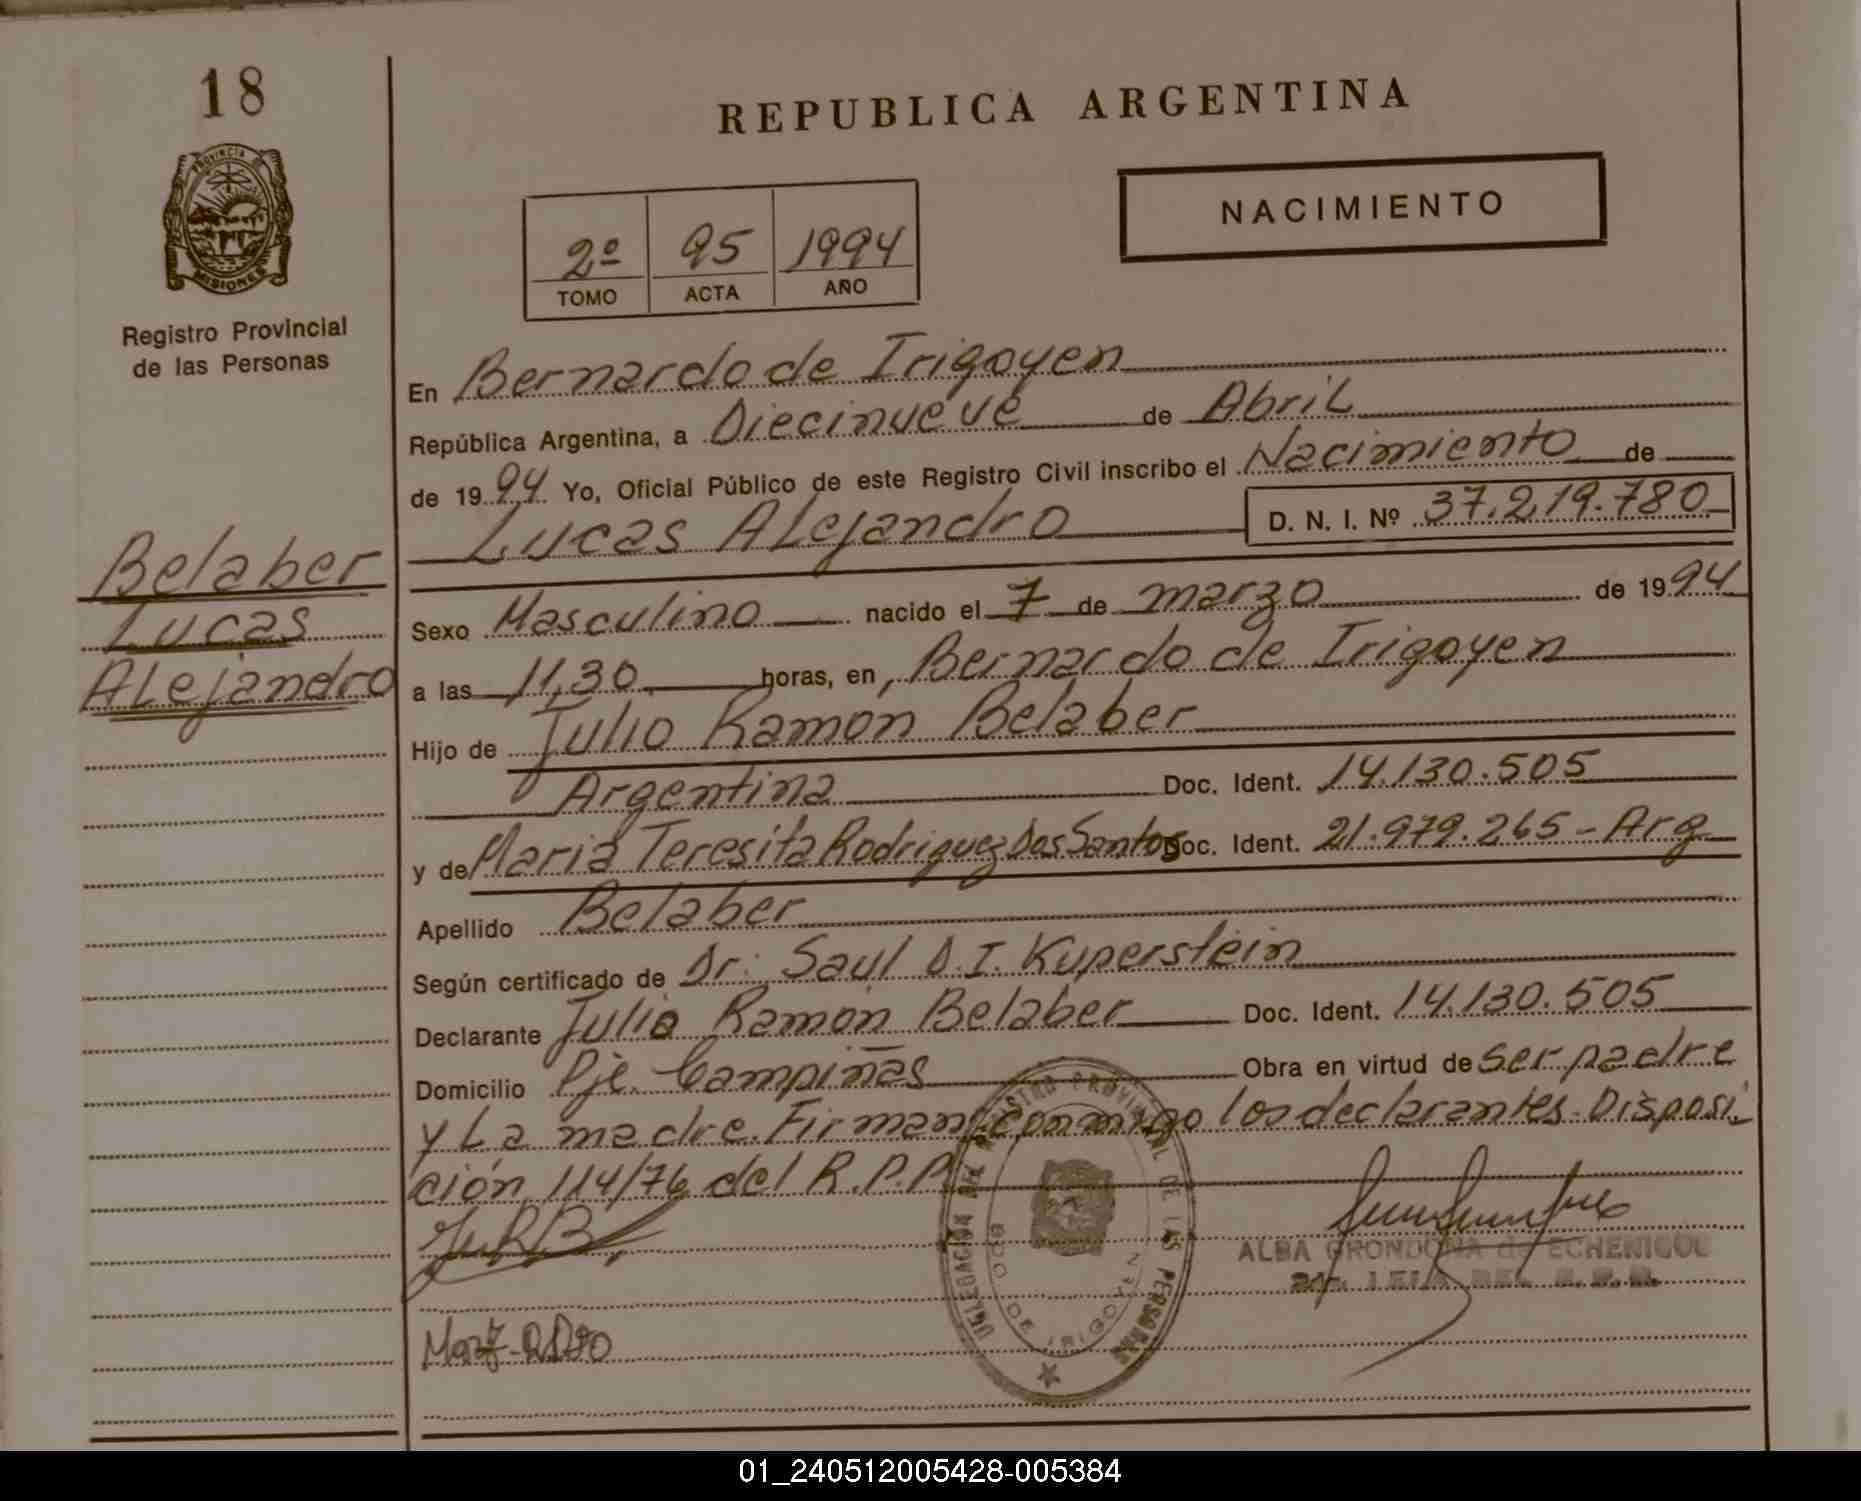 18
PROVINCIA DE
MISIONES
Registro Provincial
de las Personas
Belaber
Lucas
Alejandro
REPUBLICA ARGENTINA
NACIMIENTO
2º 95 1994
TOMO ACTA AÑO
En Bernardo de Irigoyen
República Argentina, a Diecinueve de Abril
de 1994 Yo, Oficial Público de este Registro Civil inscribo el Nacimiento de
Lucas Alejandro D. N. I. Nº 37.219.780
Sexo Masculino nacido el 7 de marzo de 1994
a las 11,30 horas, en, Bernardo de Irigoyen
Hijo de Julio Ramon Belaber
Argentina Doc. Ident. 14.130.505
y de Maria Teresita Rodriguez Dos Santos Doc. Ident. 21.979.265 - Arg
Apellido Belaber
Según certificado de Dr. Saul D. I. Kuperstein
Declarante Julio Ramón Belaber Doc. Ident. 14.130.505
Domicilio Pje. Campiñas Obra en virtud de ser padre
y La madre. Firman conmigo los declarantes. Disposi-
ción 114/76 del R.P.P.
DELEGACION DEL REGISTRO PROVINCIAL DE LAS PERSONAS
BDO DE IRIGOYEN
ALBA GRONDONA de ECHENIQUE
01_240512005428-005384